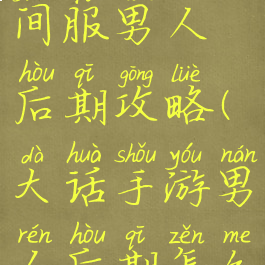 间服男人
hòu qī gōng lüè
后期攻略(
dà huà shǒu yóu nán
大话手游男
rén hòu qī zěn me
人后期怎么